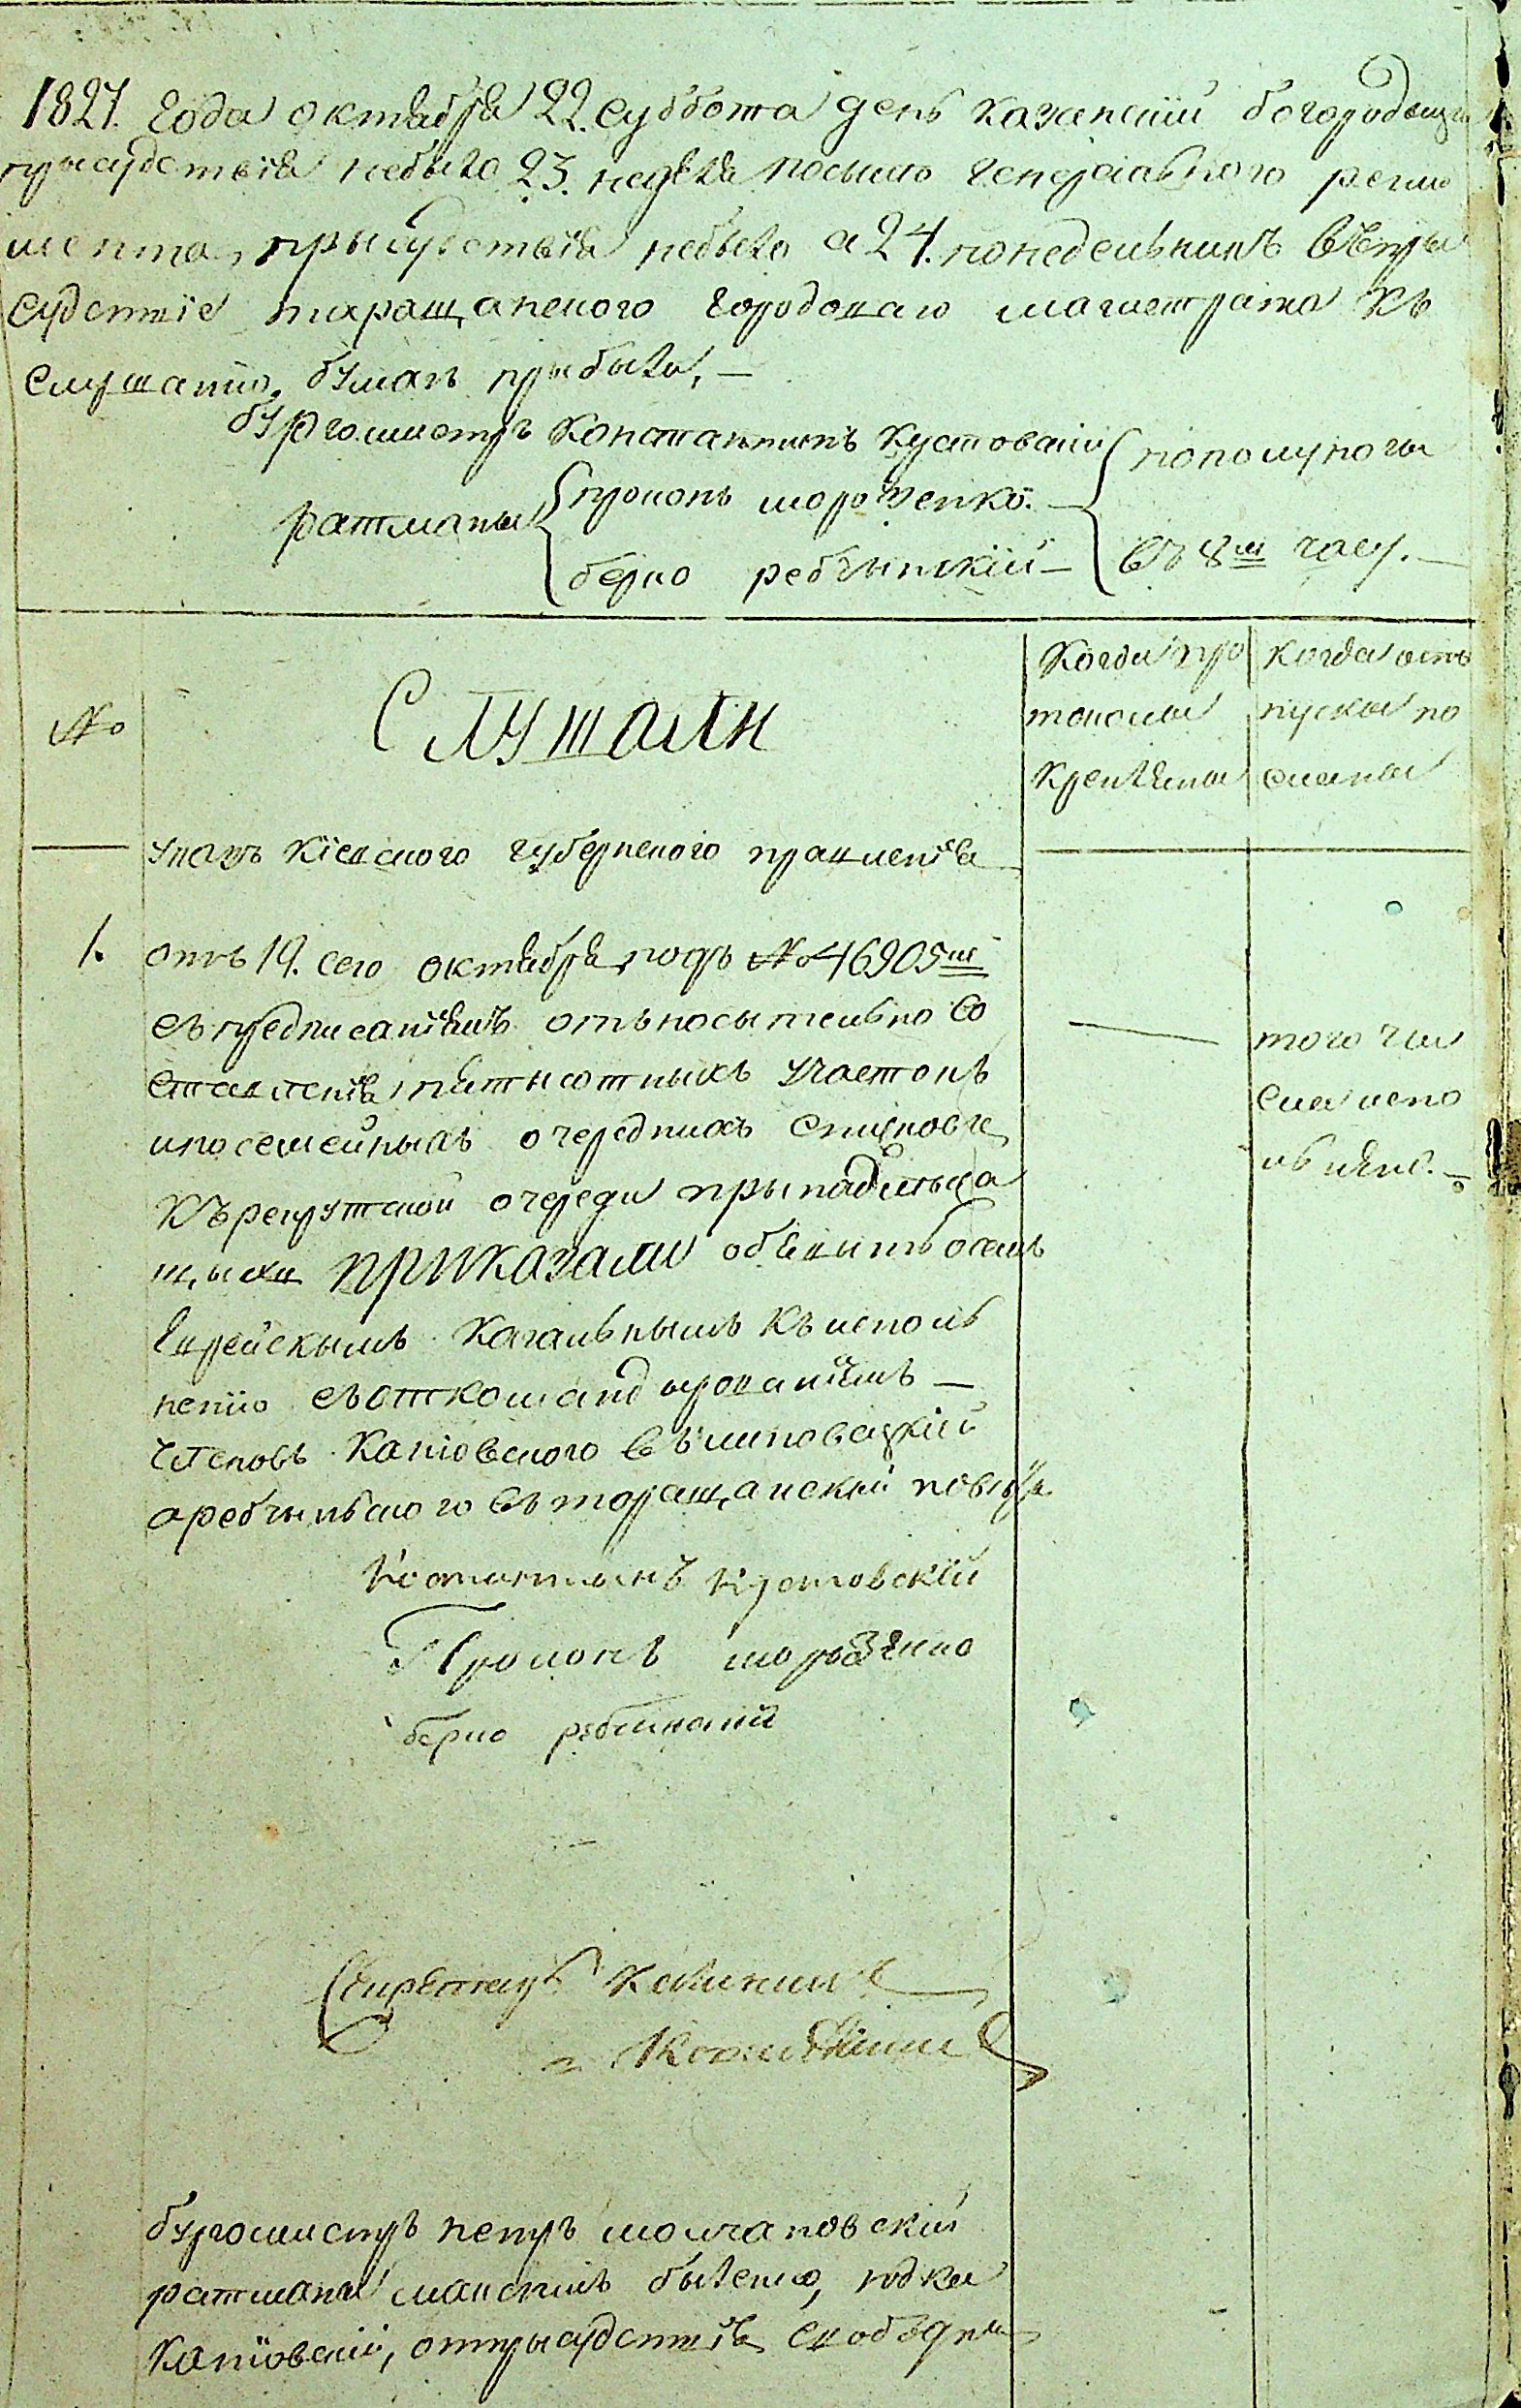 1827. года октября 22. суббота день казанскій богородици
прысудствія небыло 23. неделя посыло генерального регла
мента, прысудствія небыло а 24. понедельникъ въпры
судствіе таращанского городоваго магистрата къ
слушанію бумагъ прыбыли, —
бургомистръ Константинъ Кустовскій пополуночы
ратманы прокопъ мороженко. —
берко ребчынскій — въ 8м часу. —
№
Слушали
Когда про
токолы
крепляны
когда отъ
пускы по
сланы
указъ кіевского губернского правленія
1. отъ 19. сего октября подъ № 46905м
съ предписаніямъ отъносытельно со
ставленія пятысотныхъ участокъ
ипосемейныхъ очередныхъ спысковъ
къ рекрутской очереди прынадлежа
щыхъ приказали объявить всемъ
Еврейскымъ Кагальнымъ къ исполъ
ненію съ откомандырованіямъ —
членовъ Каніовского въ
а ребчынского въ таращанский повитъ
того чис
сла испо
лънено. —
Константынъ Кустовскій
Прокопъ морозенко
берко ребчинский
Секретарь
бургомистръ петръ молчановский
ратманы максимъ быленко, юдка
Каніовскій, отпрысудствія свободны